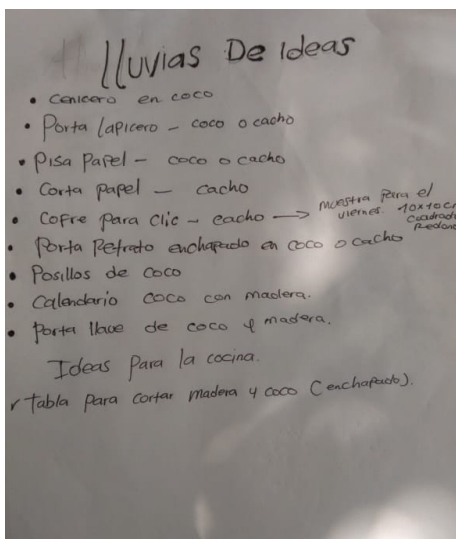 Lluvias De Ideas
• Cenicero en coco
• Porta lapicero – coco o cacho
• Pisa Papel – coco o cacho
• Corta papel – cacho
• Cofre Para clic – cacho → muestra Para el
viernes. 10x10 cm
Cuadrado
Redond
• Porta Retrato enchapado en coco o cacho
• Posillos de coco
• Calendario coco con madera.
• Porta llave de coco y madera.
Ideas Para la cocina.
Tabla para cortar madera y coco (enchapado).